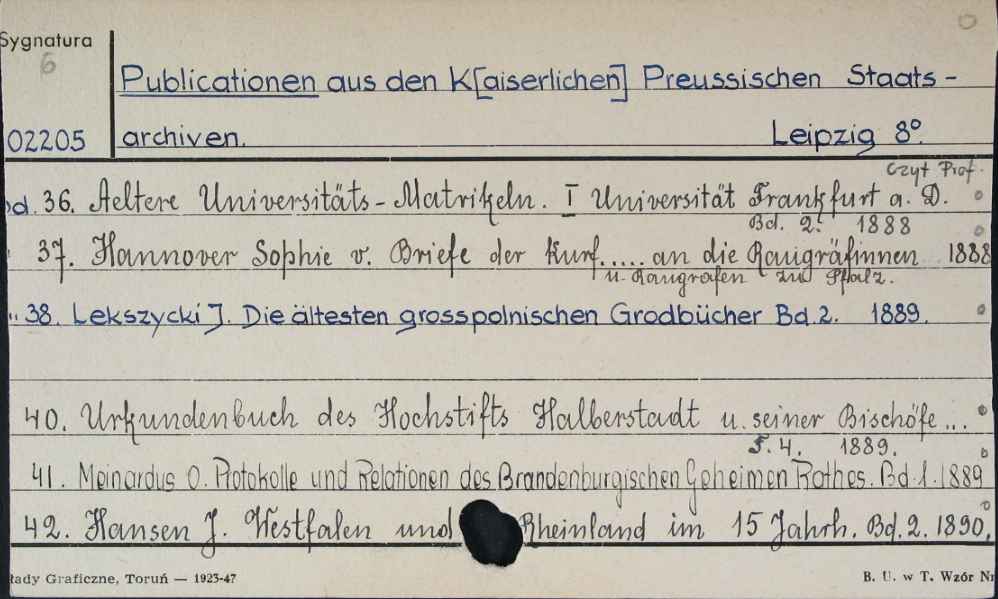 Sygnatura
6
Publicationen aus den K[aiserlichen] Preussischen Staats-
02205 archiven. Leipzig 8°.
Czyt Prof.
Bd. 36. Aeltere Universitäts-Matrikeln. I Universität Frankfurt a. D.
Bd. 2. 1888
" 37. Hannover Sophie v. Briefe der Kurf..... an die Raugräfinnen 1888
u. Raugrafen zu Pfalz.
" 38. Lekszycki J. Die ältesten grosspolnischen Grodbücher Bd. 2. 1889.
40. Urkundenbuch des Hochstifts Halberstadt u. seiner Bischöfe...
T. 4. 1889.
41. Meinardus O. Protokolle und Relationen des Brandenburgischen Geheimen Rathes. Bd. 1. 1889
42. Hansen J. Westfalen und Rheinland im 15 Jahrh. Bd. 2. 1890.
łady Graficzne, Toruń — 1923-47 B. U. w T. Wzór Nr